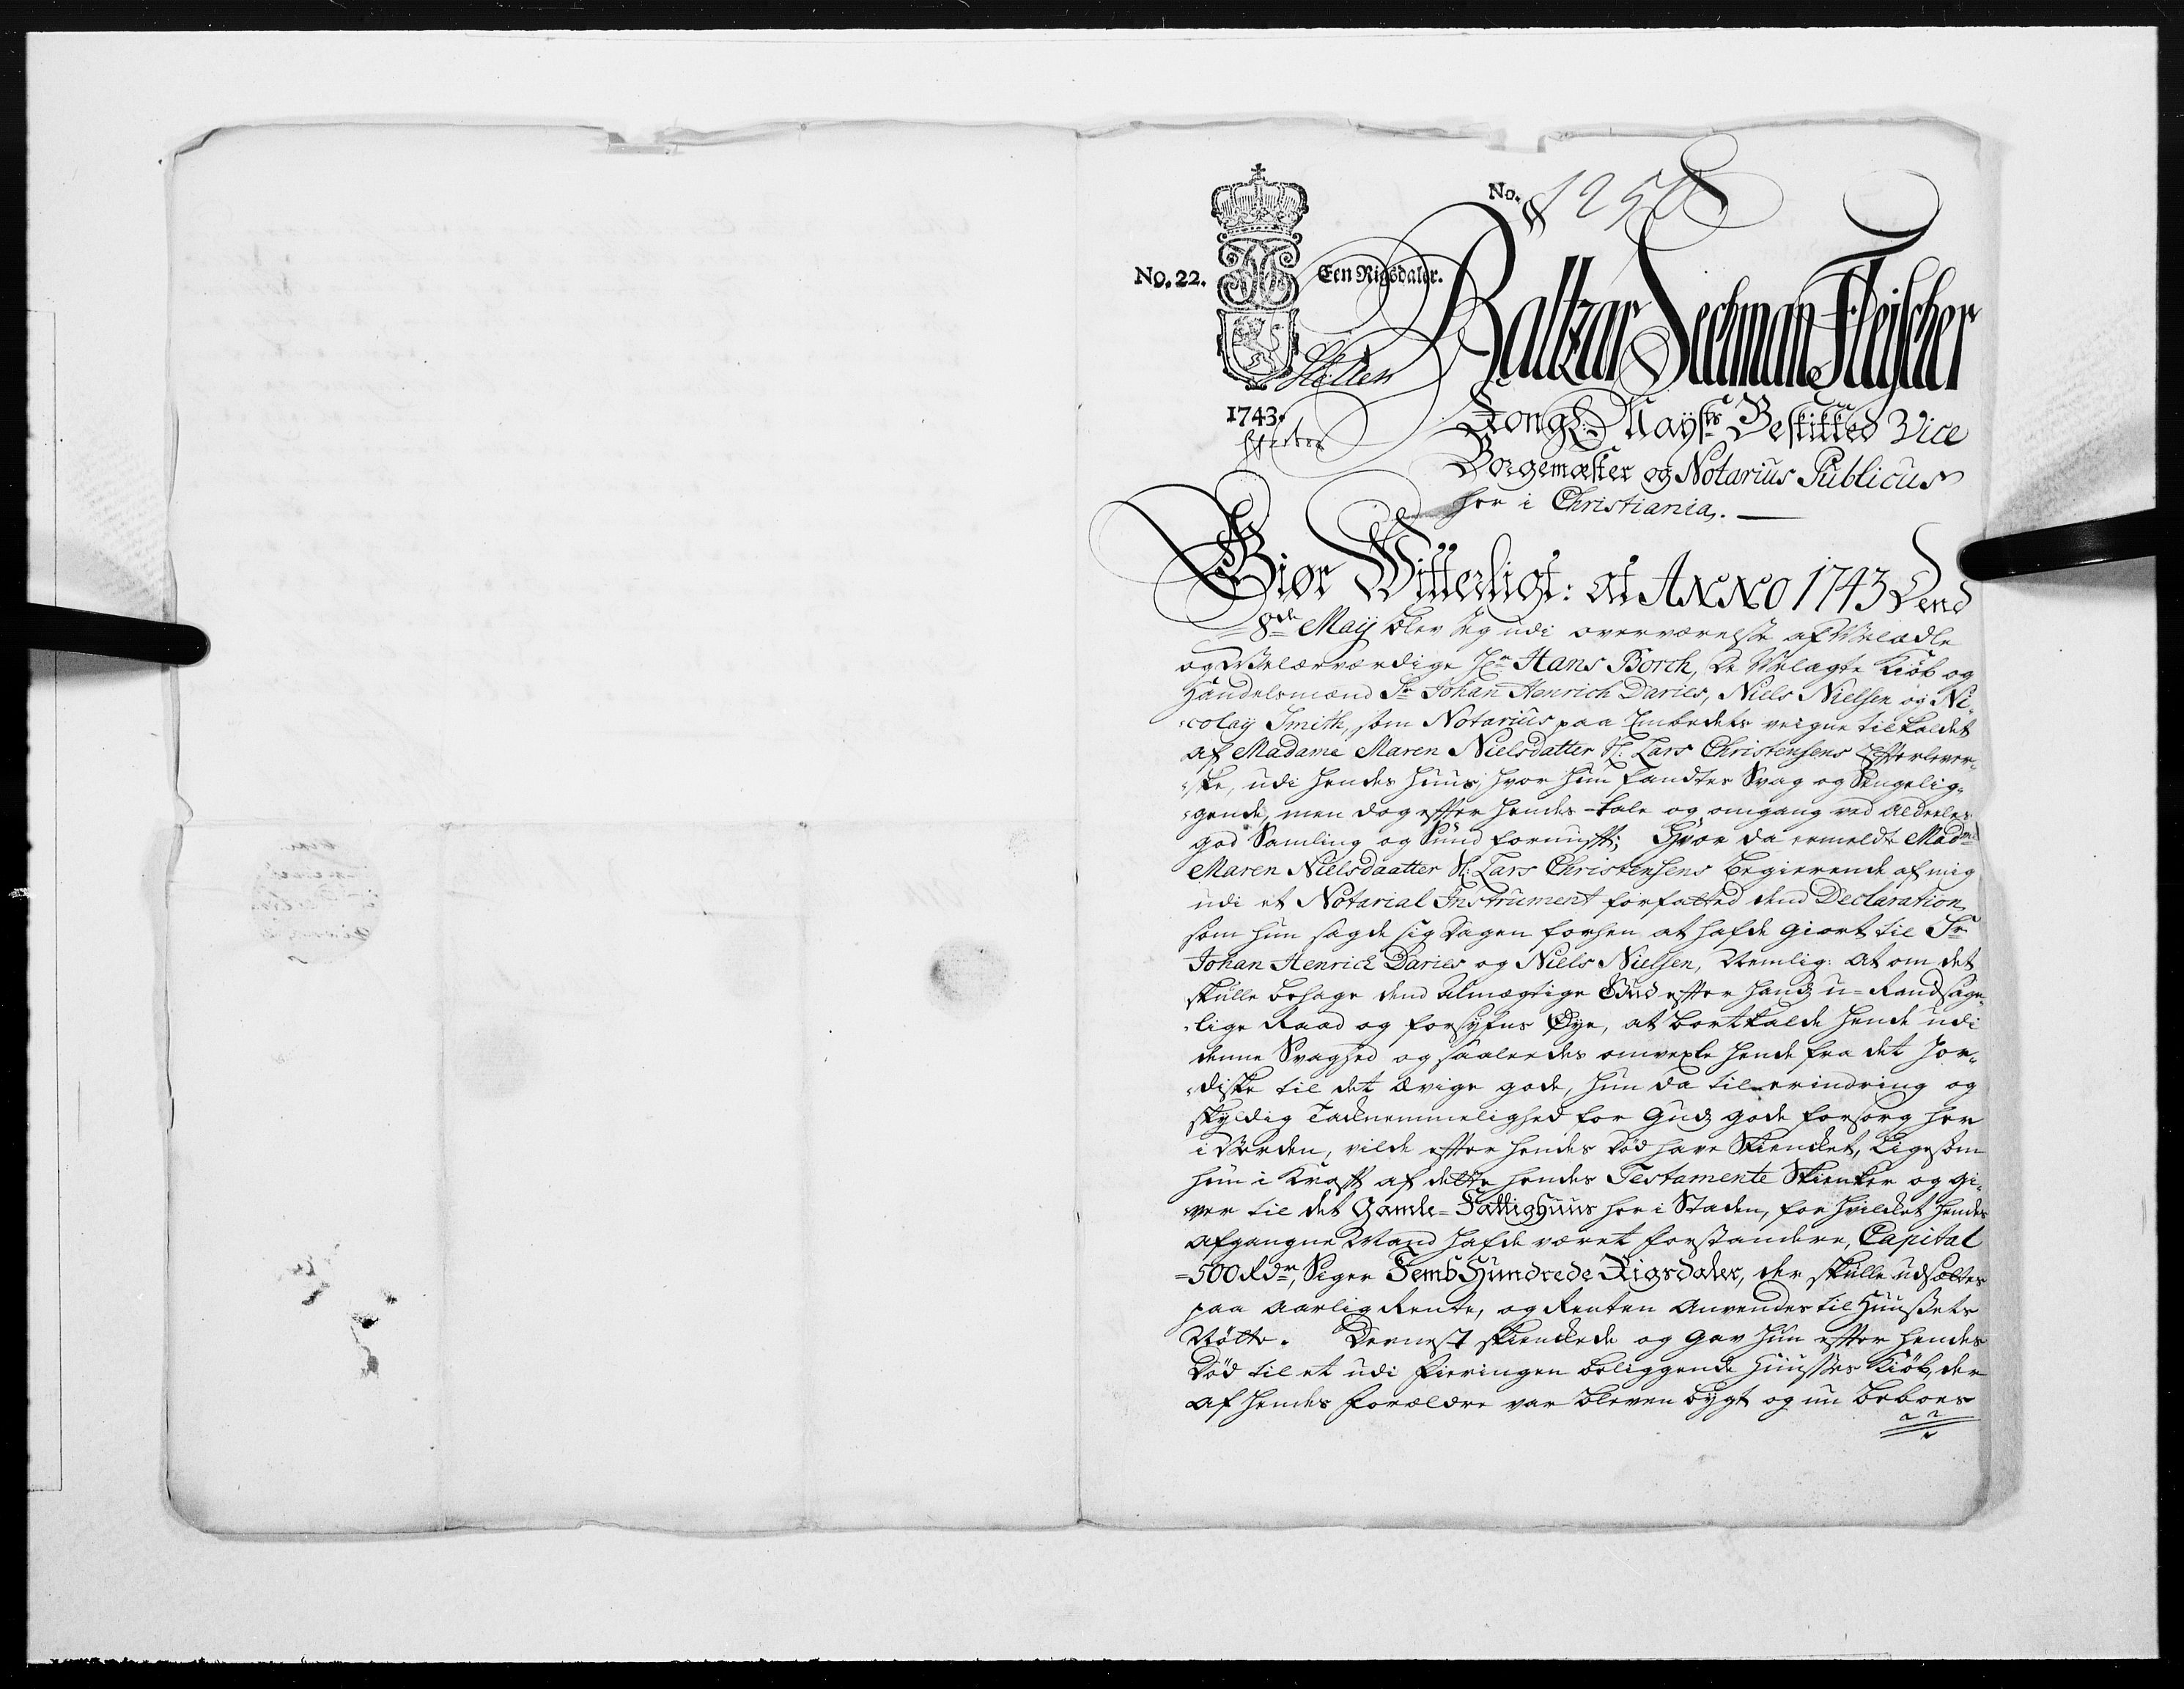 No. 1250
No. 22.
Een Rigsdaler.
1743.
Baltzar Sechman Fleischer
Kongl: Mayts Bestilted Vice
Borgemæster og Notarius Publicus
her i Christiania.
Giør Witterligt: at ANNO 1743 Dend
8de Maij blev Jeg udi overværelse af Velædle
og Velærværdige Hr Hans Borch, De Velagte Kiøb og
Handelsmænd Sr Johan Henrich Daries, Niels Nielsen og Ni-
colaij Smith, som Notarius paa Embedets veigne tilkaldet
af Madame Maren Nielsdatter Sl: Lars Christensens Efterlever-
ske, udi hendes Huus, hvor hun fandtes Svag og Sengelig-
gende, men dog effter hendes tale og omgang ved alderles
god Samling og Sund fornufft; Hvor da ermeldte Madme
Maren Nielsdaatter Sl: Lars Christensens begierende af mig
udi et Notarial Instrument forfatted dend Declaration
som hun sagde sig Dagen forhen at hafde giort til Sr
Johan Henrich Daries og Niels Nielsen, Nemlig: At om det
skulle behage dend almægtige Gud effter hans u-Randsage-
lige Raad og forsyens Øye, at bortkalde hende udi
denne Svaghed og saaledes omvexle hende fra det Jor-
diske til det ævige gode, hun da til erindring og
skyldig Tacknemmelighed for Guds gode forsorg her
i Verden, vilde effter hendes død have Skiencket, Ligesom
hun i Krafft af dette hendes Testamente Skienker og gi-
ver til det Gamle-Fattighuus her i Staden, for hvilcket hendes
afgangne Mand hafde været forstandere, Capital
500 Rdr, Siger Femb Hundrede Rigsdaler, der skulle udsættes
paa aarlig Rente, og Renten anvendes til Huusets
Nötte. Dernest skienckede og gav hun effter hendes
død til et udi Pieringen beliggende Huuses Kiöb, der
af hendes forældre var bleven bygt og nu beboes